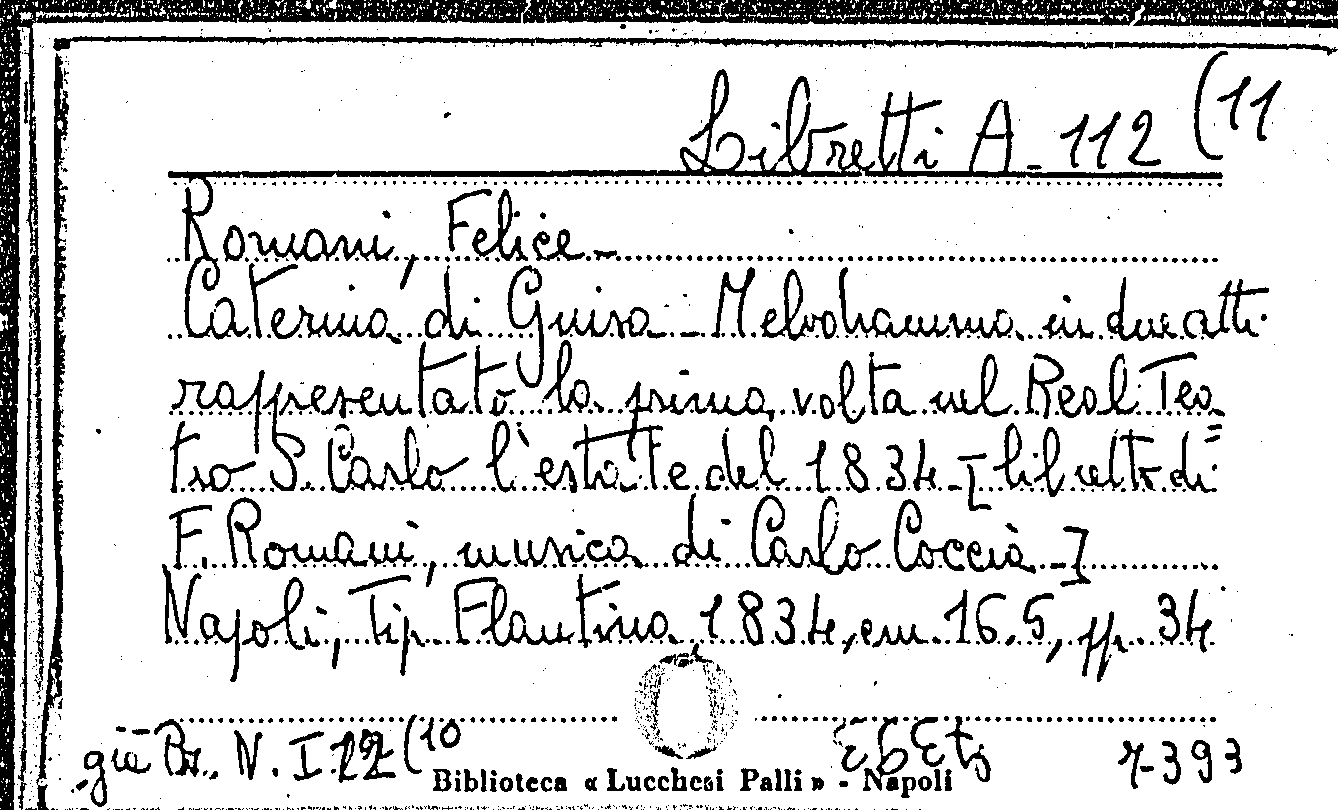 Libretti A-112 (11
Romani, Felice-
Caterina di Guisa-Melodramma in due atti
rappresentato la prima volta nel Real Tea=
tro S. Carlo l'estate del 1834-[libretto di
F. Romani, musica di Carlo Coccia-]
Napoli, Tip. Flautina, 1834, cm. 16.5, pp. 34
già Br. N. I. 22 (10
7-393
Biblioteca « Lucchesi Palli » - Napoli